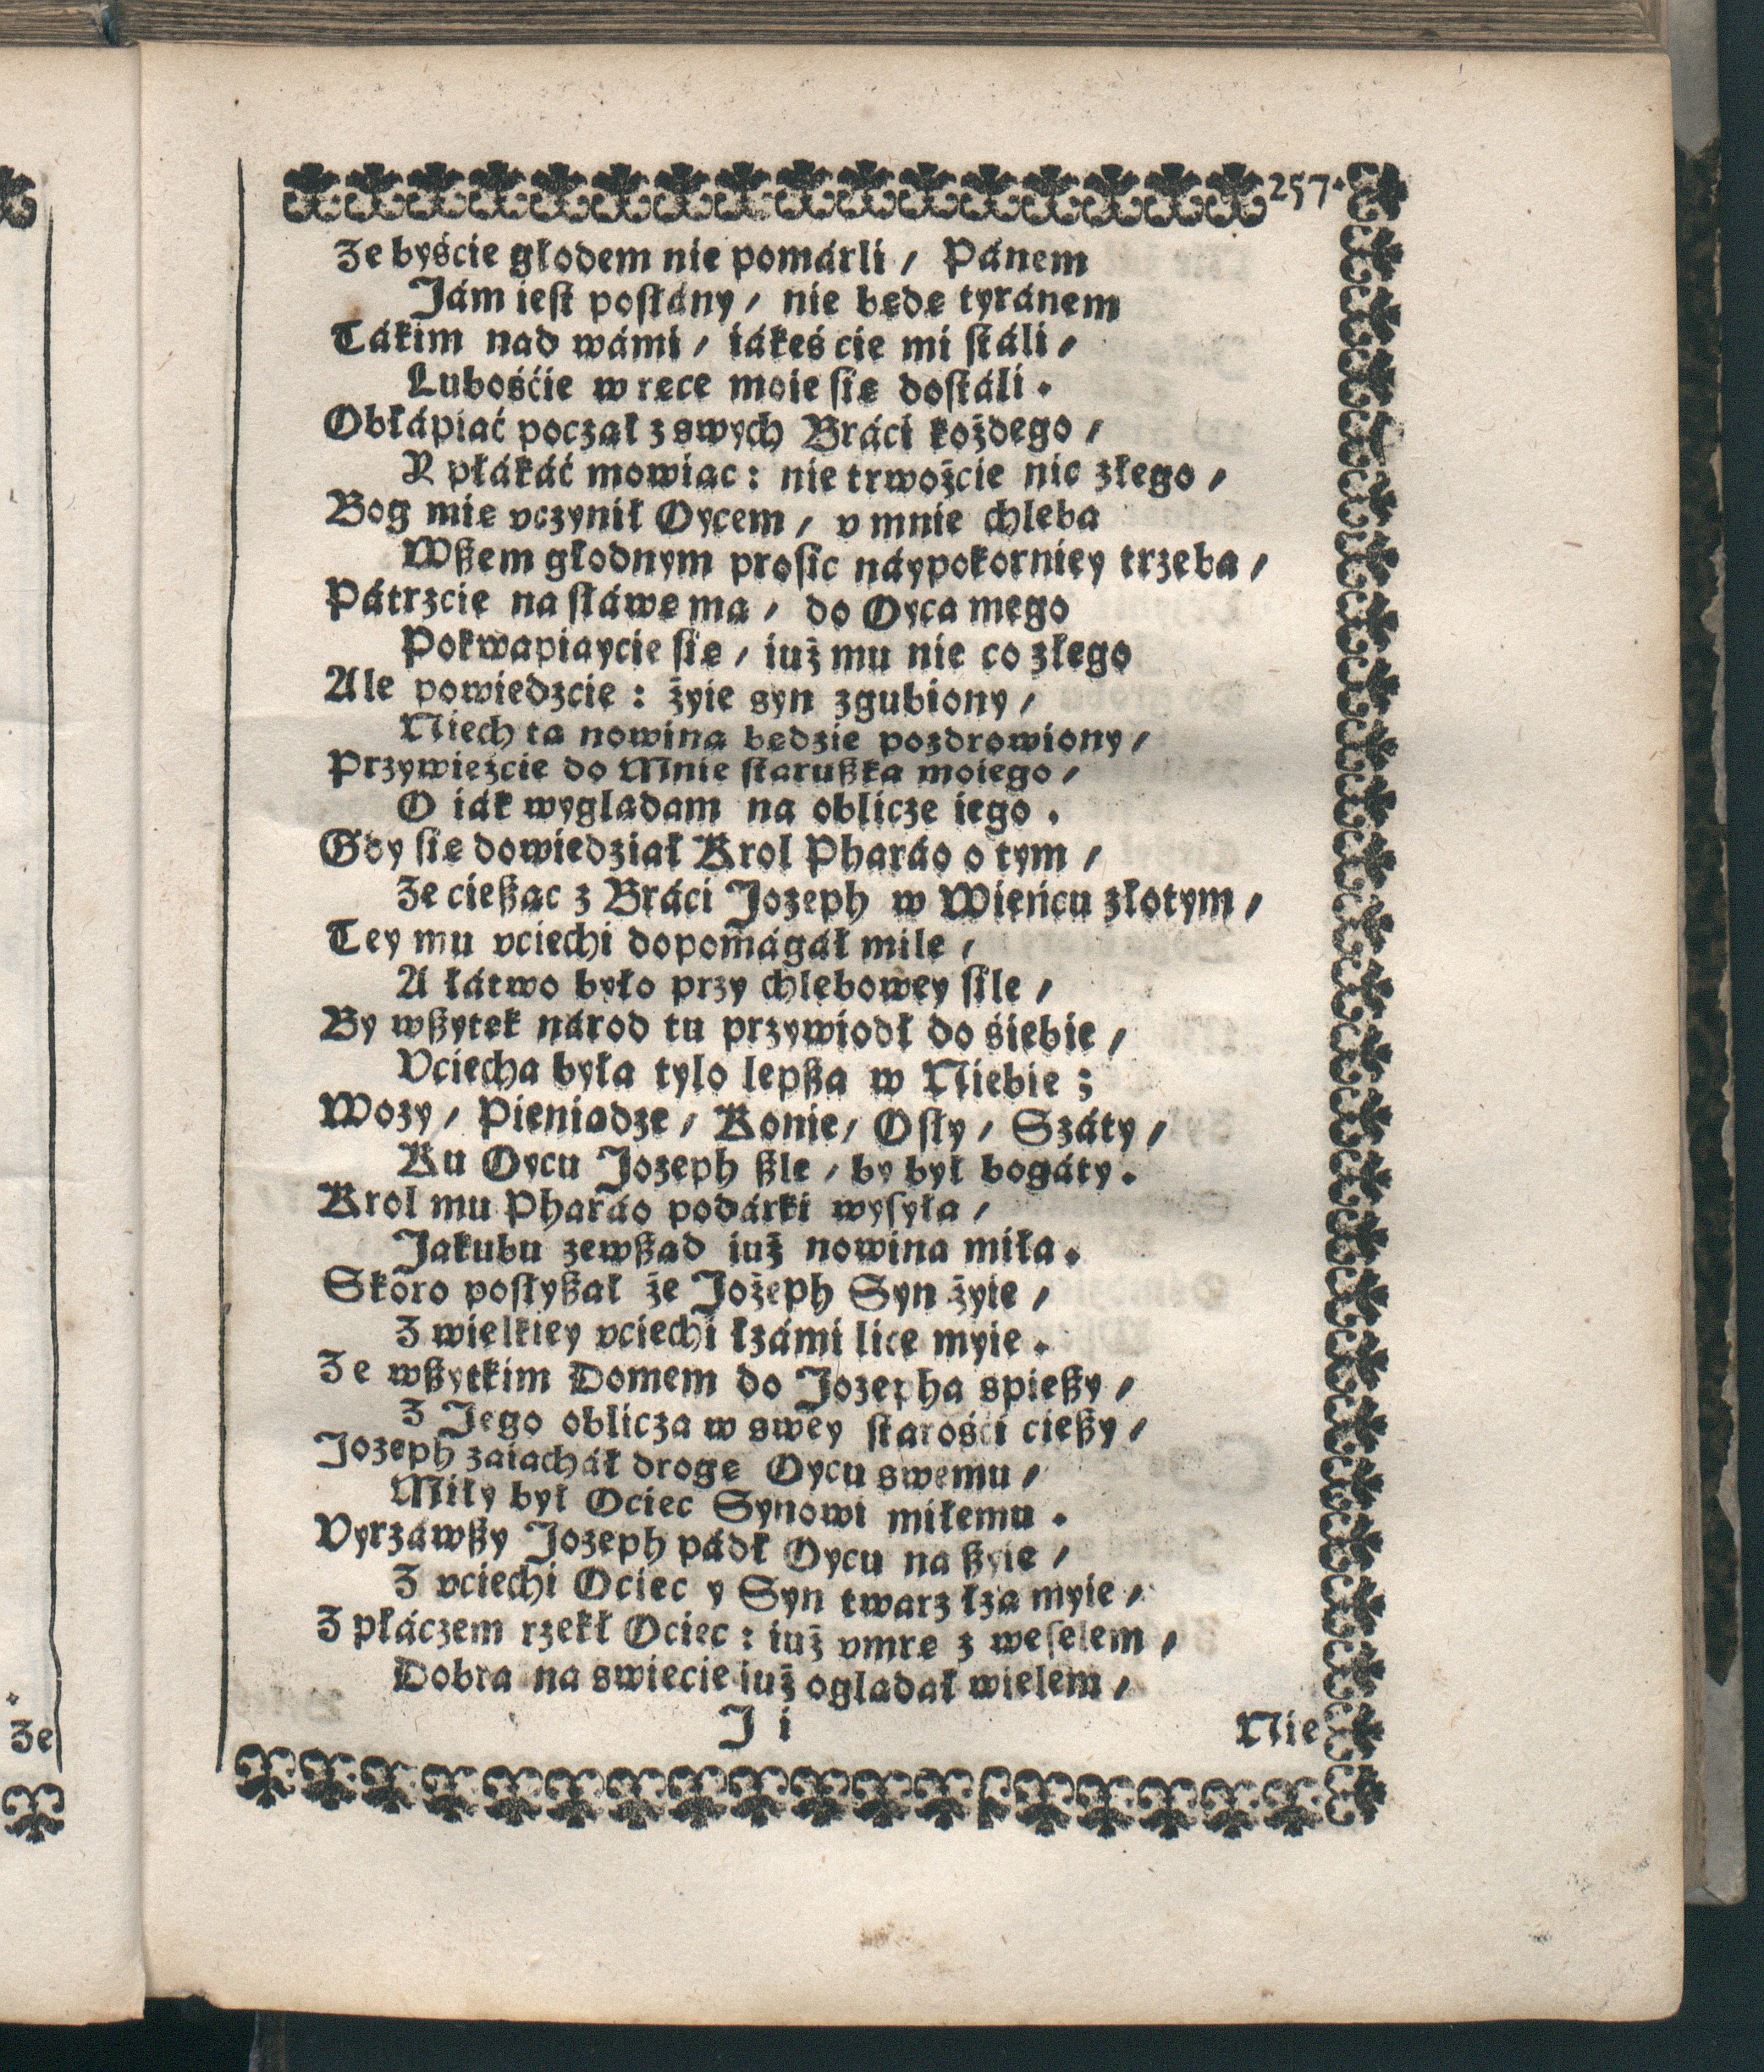 257.
Ze byśćie głodem nie pomárli / Pánem
Jám iest posłány / nie będę tyránem
Tákim nad wámi / iákeś cie mi stáli /
Lubośćie w ręce moie się dostáli.
Obłápiać począł z swych Bráci kożdego /
Y płákáć mowiąc: nie trwożcie nic złego /
Bog mię vczynił Oycem / v mnie chleba
Wßem głodnym prosic náypokorniey trzeba /
Pátrzcie na sławę mą / do Oyca mego
Pokwapiaycie się / iuż mu nie co złego
Ale powiedzcie: żyie syn zgubiony /
Niech tą nowiną będzie pozdrowiony /
Przywieźcie do Mnie starußka moiego /
O iák wyglądam na oblicze iego.
Gdy się dowiedział Krol Pharáo o tym /
Ze cießąc z Bráci Jozeph w Wieńcu złotym /
Tey mu vciechi dopomágáł mile /
A łátwo było przy chlebowey sile /
By wßytek národ tu przywiodł do śiebie /
Vciecha była tylo lepßa w Niebie;
Wozy / Pieniądze / Konie / Osły / Száty /
Ku Oycu Jozeph ßle / by był bogáty.
Krol mu Pharáo podárki wysyła /
Jakubu zewßąd iuż nowina miła.
Skoro posłyßał że Jożeph Syn żyie /
Z wielkiey vciechi łzámi lice myie.
Ze wßytkim Domem do Jozepha spießy /
Z Jego oblicza w swey starośći cießy /
Jozeph zaiacháł drogę Oycu swemu /
Miły był Ociec Synowi miłemu.
Vyrzáwßy Jozeph pádł Oycu na ßyię /
Z vciechi Ociec y Syn twarz łzą myie /
Z płáczem rzekł Ociec: iuż vmrę z weselem /
Dobra na swiecie iuż oglądał wielem /
J i
Nie
Ze